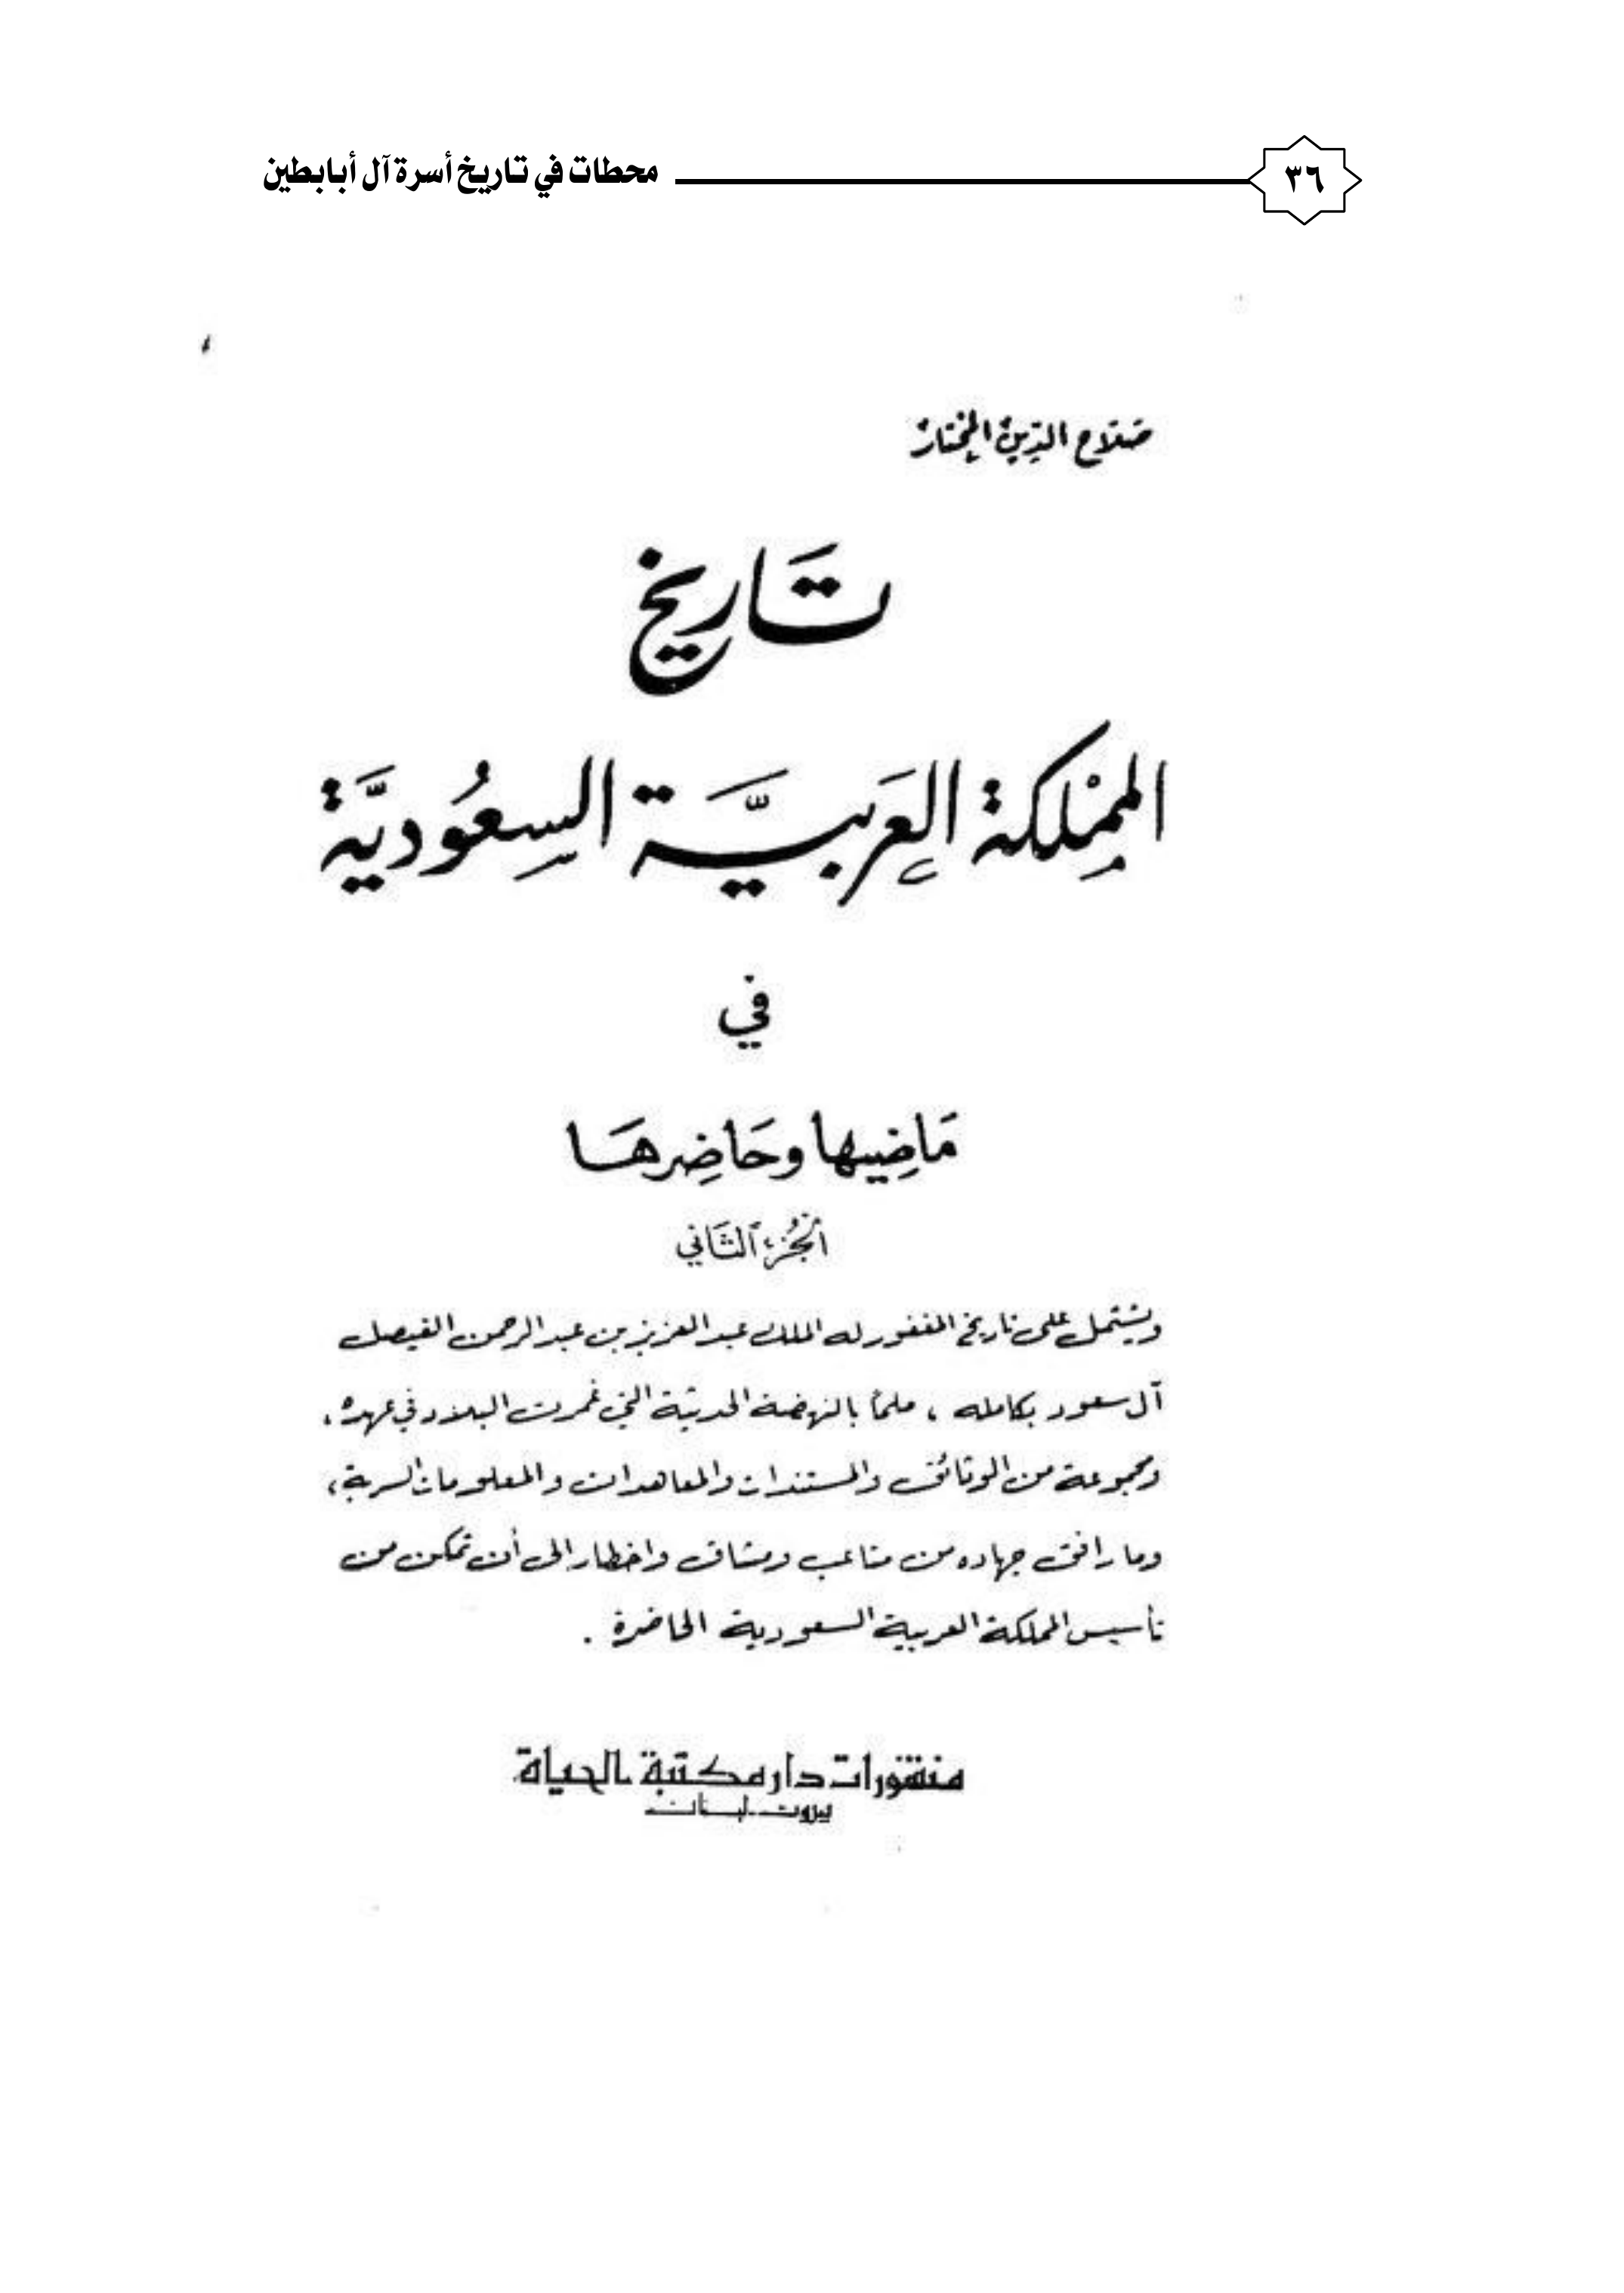 ٣٦
محطات في تاريخ أسرة آل أبابطين
صَلاح الدّين المختار
تَاريخ
المملكة العَربيَّة السعُوديَّة
في
مَاضِيها وحَاضِرهَا
الجُزء الثَاني
ويشتمل على تاريخ المغفور له الملك عبد العزيز بن عبد الرحمن الفيصل
آل سعود بكامله ، ملمّا بالنهضة الحديثة التي غمرت البلاد في عهده ،
ومجموعة من الوثائق والمستندات والمعاهدات والمعلومات السرية ،
وما رافق جهاده من متاعب ومشاق واخطار الى أن تمكن من
تأسيس المملكة العربية السعودية الحاضرة .
منشورات دار مكتبة الحياة
بيروت - لبنان